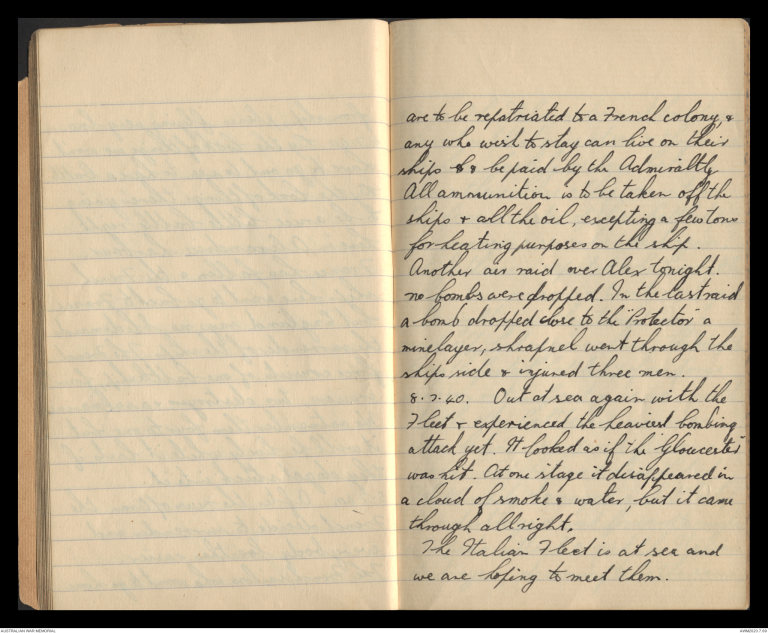 are to be repatriated to a French colony, &
any who wish to stay can live on their
ships & be paid by the Admiralty
All ammunition is to be taken off the
ships & all the oil, excepting a few tons
for heating purposes on the ship.
Another air raid over Alex tonight.
no bombs were dropped. In the last raid
a bomb dropped close to the "Protector" a
minelayer, shrapnel went through the
ships side & injured three men.
8.7.40. Out at sea again with the
Fleet & experienced the heaviest bombing
attack yet. It looked as if the "Gloucester"
was hit. At one stage it disappeared in
a cloud of smoke & water, but it came
through allright.
The Italian Fleet is at sea and
we are hoping to meet them.
AUSTRALIAN WAR MEMORIAL